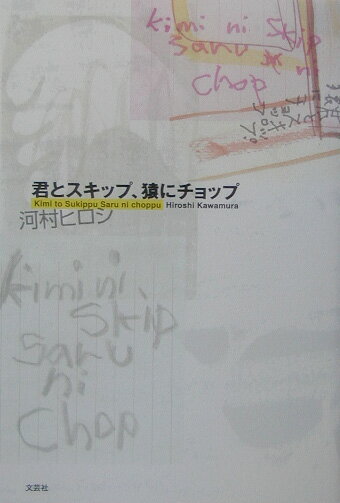 kimi ni skip
saru * ni
chop
君とスキップ、猿にチョップ
Kimi to Sukippu Saru ni choppu Hiroshi Kawamura
河村ヒロシ
kimi ni
skip
saru
ni
chop
文芸社